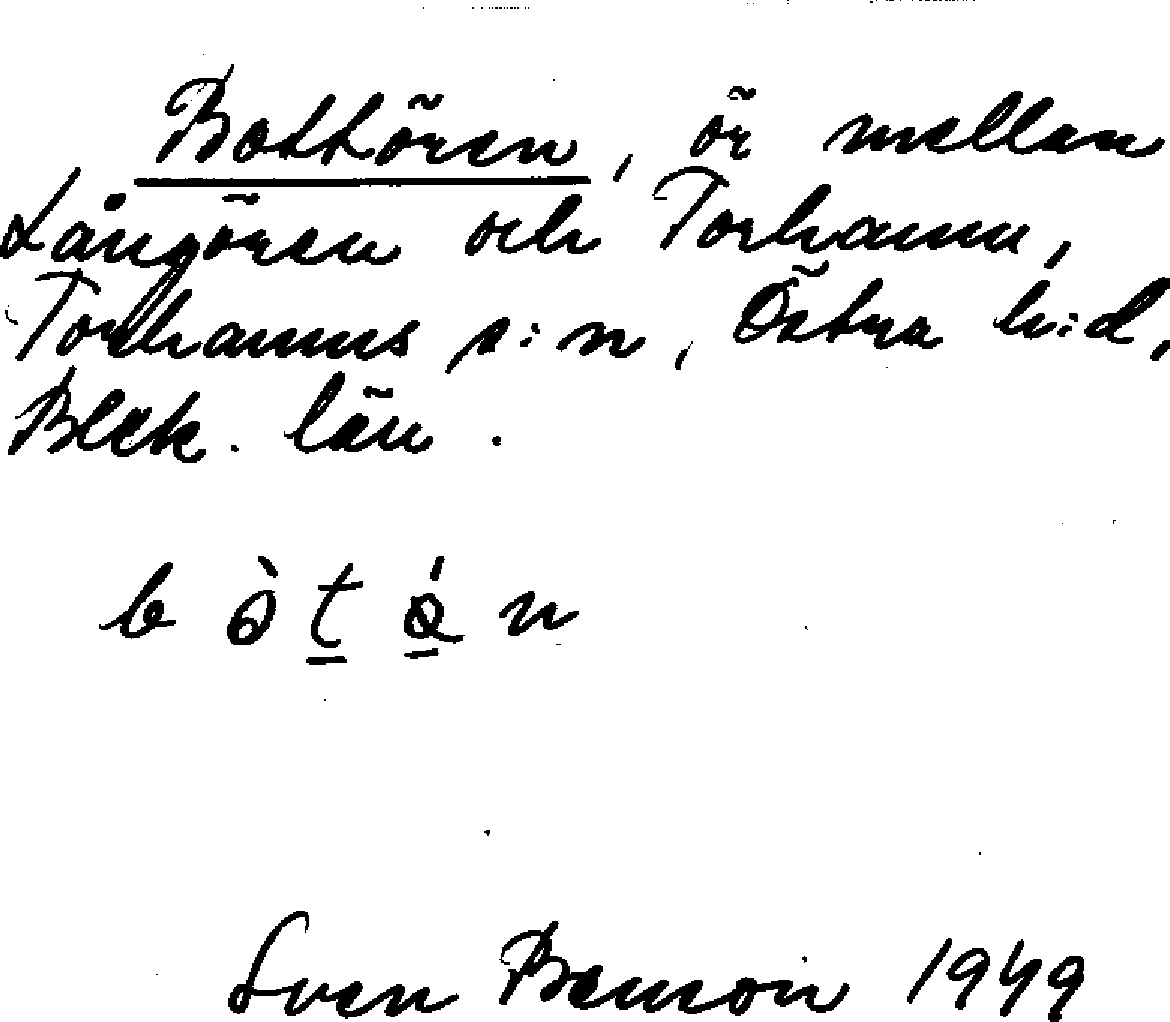 Bottören, ör mellan
Långören och Torhamn,
Torhamns s:n, Östra h:d,
Blek. län.
Sven Benson 1949